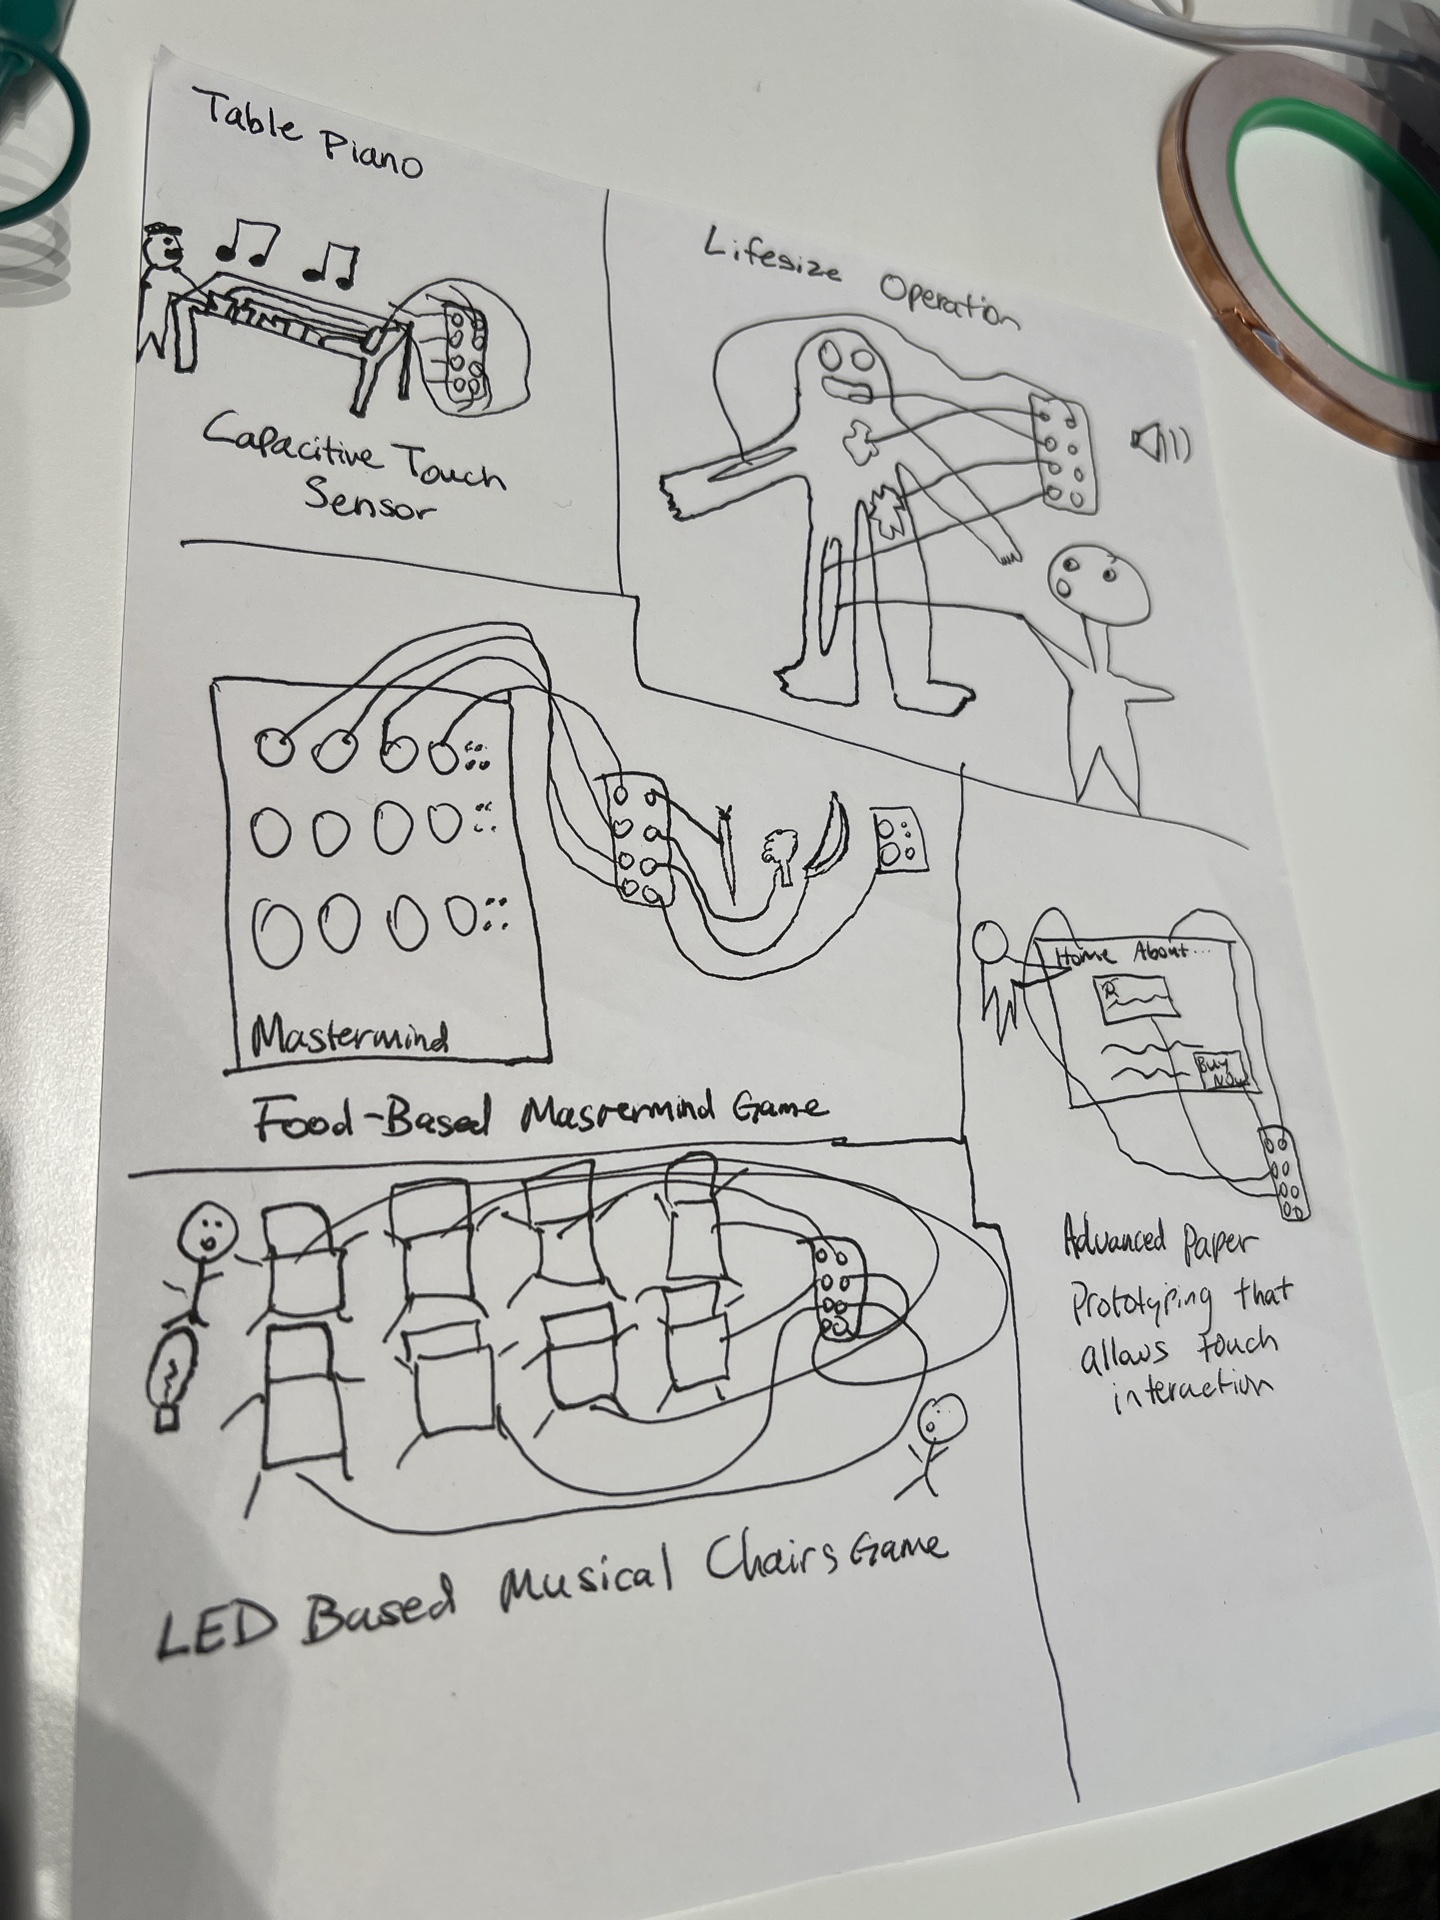 Table Piano
Capacitive Touch
Sensor
Lifesize Operation
Mastermind
Food-Based Mastermind Game
Home About...
Buy
Now
Advanced Paper
Prototyping that
allows touch
interaction
LED Based Musical Chairs Game